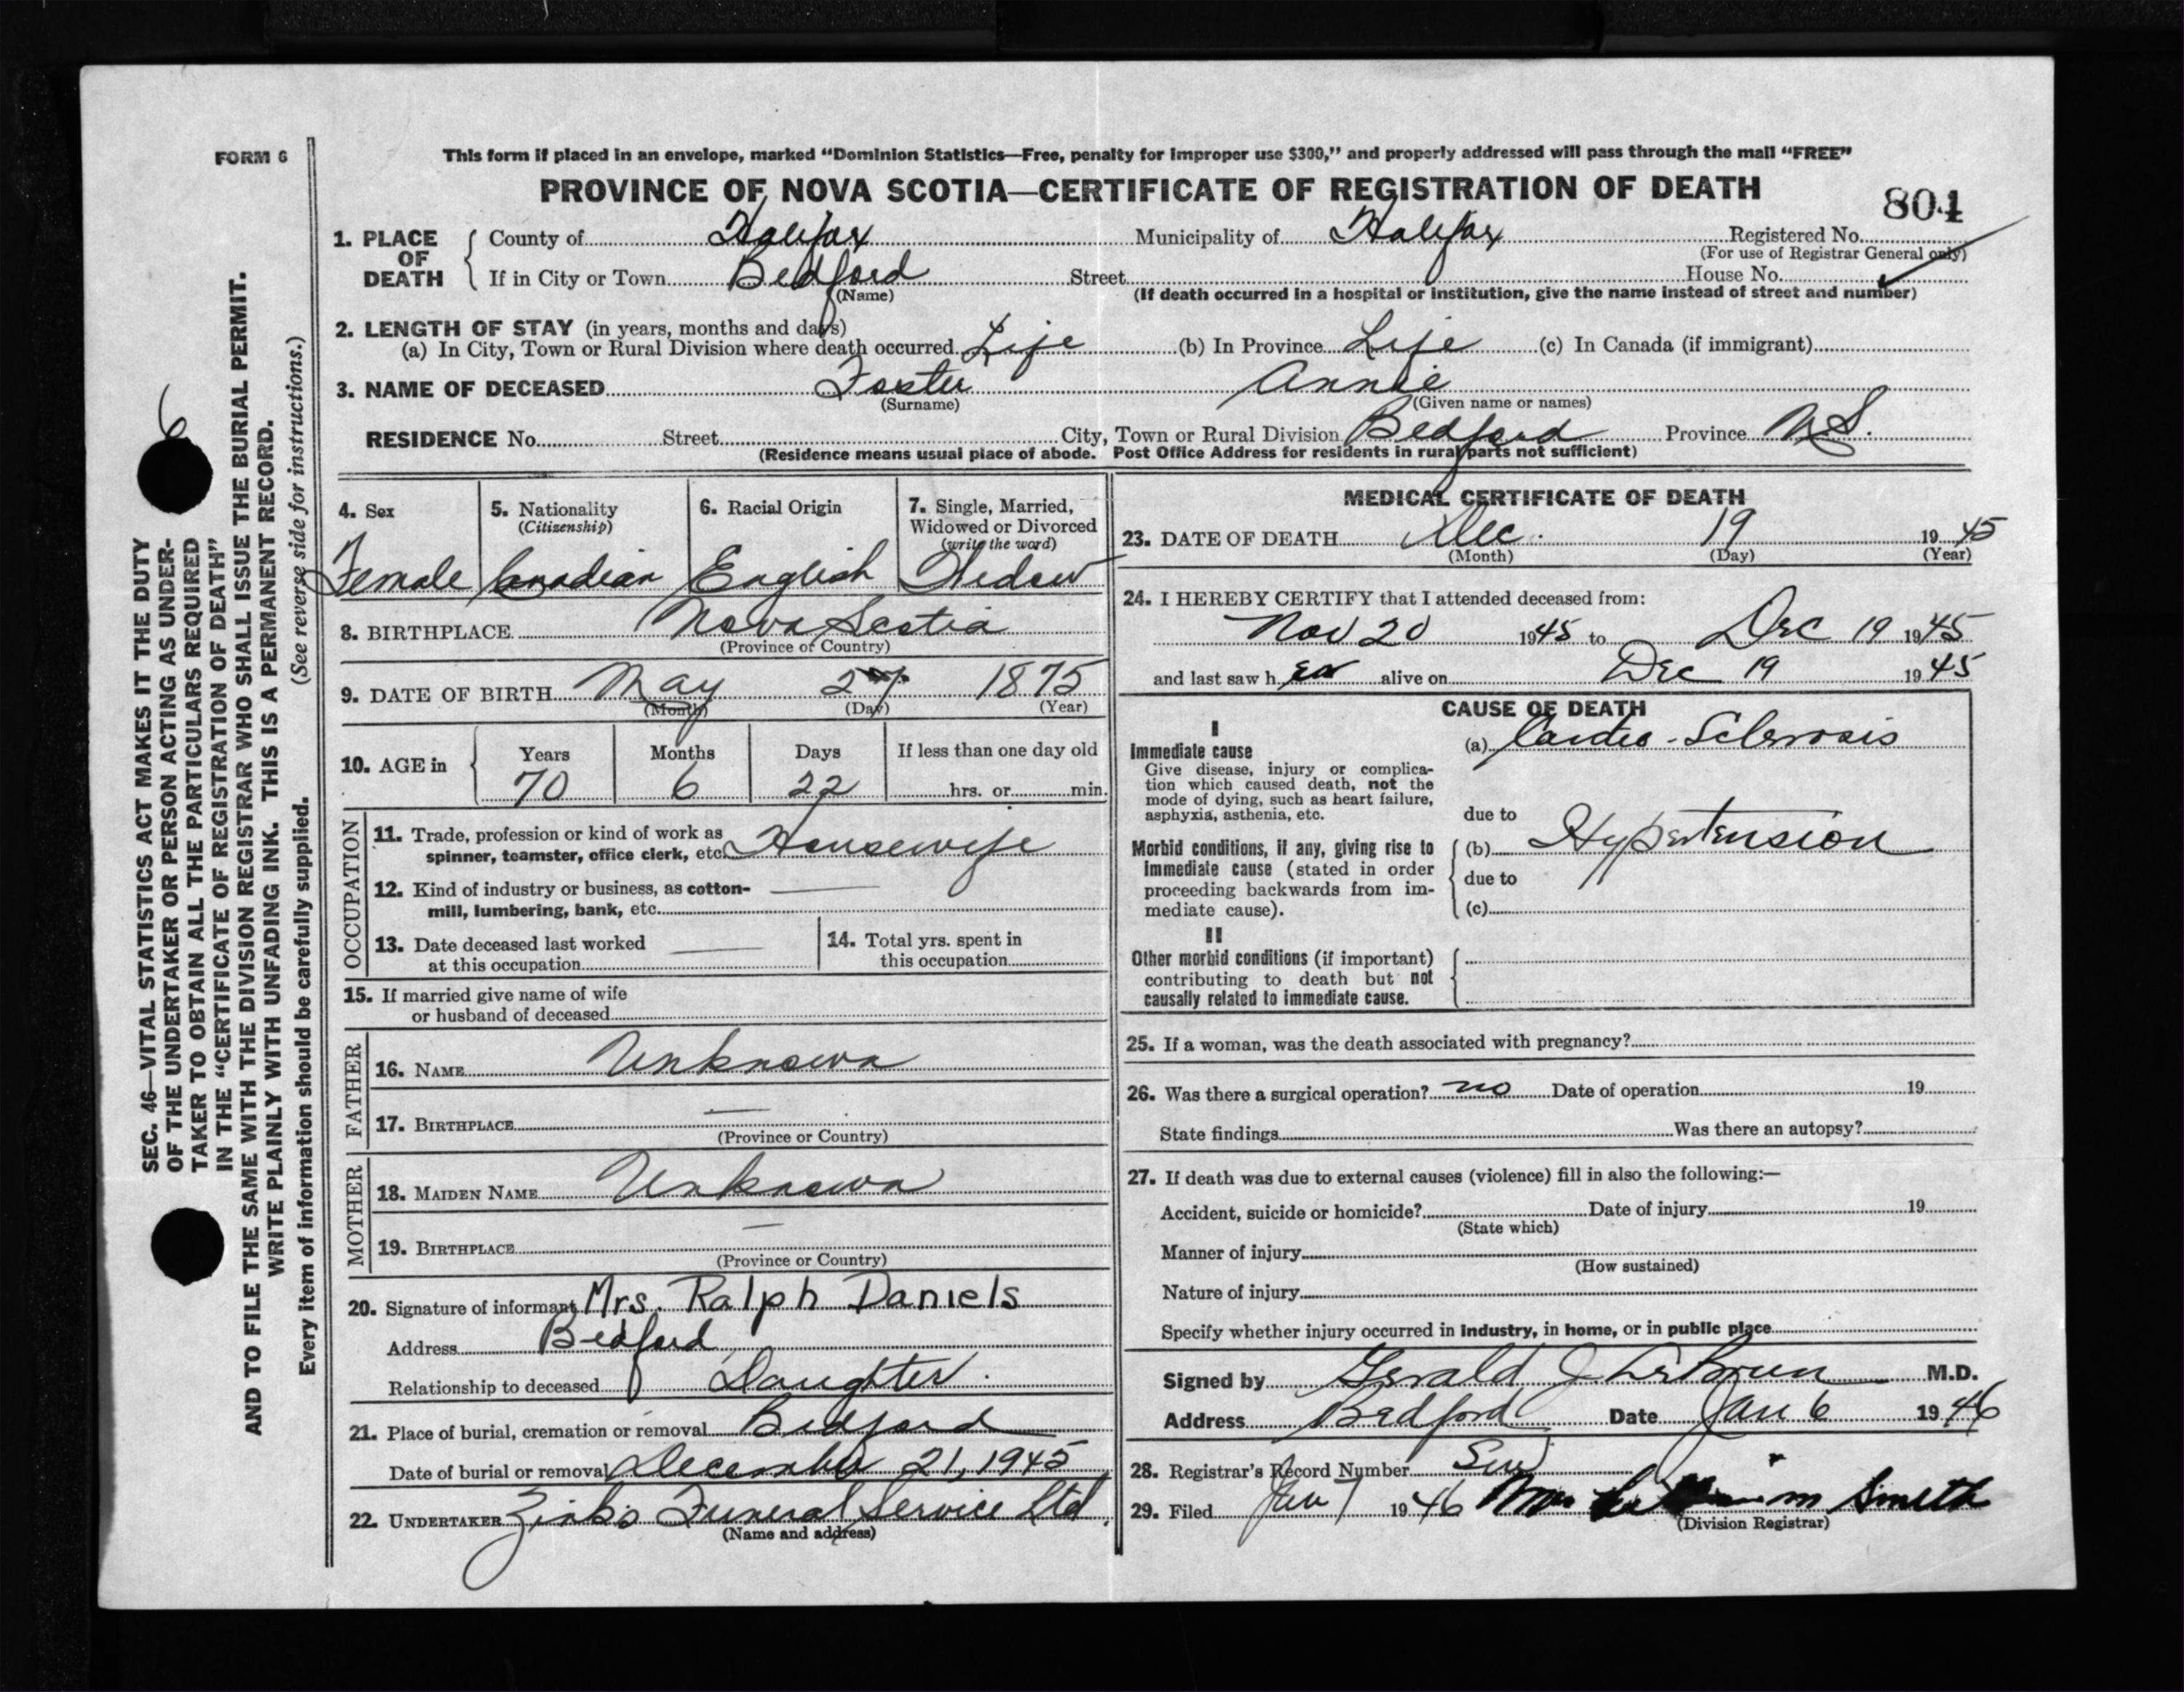 FORM 6
SEC. 46—VITAL STATISTICS ACT MAKES IT THE DUTY
OF THE UNDERTAKER OR PERSON ACTING AS UNDER-
TAKER TO OBTAIN ALL THE PARTICULARS REQUIRED
IN THE "CERTIFICATE OF REGISTRATION OF DEATH"
AND TO FILE THE SAME WITH THE DIVISION REGISTRAR WHO SHALL ISSUE THE BURIAL PERMIT.
WRITE PLAINLY WITH UNFADING INK. THIS IS A PERMANENT RECORD.
Every item of information should be carefully supplied. (See reverse side for instructions.)
6
This form if placed in an envelope, marked "Dominion Statistics—Free, penalty for improper use $300," and properly addressed will pass through the mail "FREE"
PROVINCE OF NOVA SCOTIA—CERTIFICATE OF REGISTRATION OF DEATH
804
1. PLACE OF DEATH County of Halifax Municipality of Halifax Registered No.
(For use of Registrar General only)
If in City or Town Bedford Street House No.
(Name) (If death occurred in a hospital or institution, give the name instead of street and number)
2. LENGTH OF STAY (in years, months and days)
(a) In City, Town or Rural Division where death occurred Life (b) In Province Life (c) In Canada (if immigrant)
3. NAME OF DECEASED Foster Annie
(Surname) (Given name or names)
RESIDENCE No. Street City, Town or Rural Division Bedford Province N.S.
(Residence means usual place of abode. Post Office Address for residents in rural parts not sufficient)
4. Sex 5. Nationality (Citizenship) 6. Racial Origin 7. Single, Married, Widowed or Divorced (write the word)
Female Canadian English Widow
8. BIRTHPLACE Nova Scotia
(Province or Country)
9. DATE OF BIRTH May 27 1875
(Month) (Day) (Year)
10. AGE in Years Months Days If less than one day old
70 6 22 hrs. or min.
OCCUPATION
11. Trade, profession or kind of work as
spinner, teamster, office clerk, etc. Housewife
12. Kind of industry or business, as cotton-
mill, lumbering, bank, etc. —
13. Date deceased last worked
at this occupation —
14. Total yrs. spent in
this occupation
15. If married give name of wife
or husband of deceased
FATHER
16. NAME Unknown
17. BIRTHPLACE —
(Province or Country)
MOTHER
18. MAIDEN NAME Unknown
19. BIRTHPLACE —
(Province or Country)
20. Signature of informant Mrs. Ralph Daniels
Address Bedford
Relationship to deceased Daughter.
21. Place of burial, cremation or removal Bedford
Date of burial or removal December 21, 1945
22. UNDERTAKER Zink's Funeral Service Ltd.
(Name and address)
MEDICAL CERTIFICATE OF DEATH
23. DATE OF DEATH Dec. 19 1945
(Month) (Day) (Year)
24. I HEREBY CERTIFY that I attended deceased from:
Nov 20 1945 to Dec 19 1945
and last saw h er alive on Dec 19 1945
CAUSE OF DEATH
I
Immediate cause
Give disease, injury or complica-
tion which caused death, not the
mode of dying, such as heart failure,
asphyxia, asthenia, etc.
(a) Cardio-Sclerosis
due to
Morbid conditions, if any, giving rise to
immediate cause (stated in order
proceeding backwards from im-
mediate cause).
(b) Hypertension
due to
(c)
II
Other morbid conditions (if important)
contributing to death but not
causally related to immediate cause.
25. If a woman, was the death associated with pregnancy?
26. Was there a surgical operation? no Date of operation 19
State findings Was there an autopsy?
27. If death was due to external causes (violence) fill in also the following:—
Accident, suicide or homicide? Date of injury 19
(State which)
Manner of injury
(How sustained)
Nature of injury
Specify whether injury occurred in industry, in home, or in public place
Signed by Gerald J LeBrun M.D.
Address Bedford Date Jan 6 1946
28. Registrar's Record Number
29. Filed Jan 7 1946 m Smith
(Division Registrar)